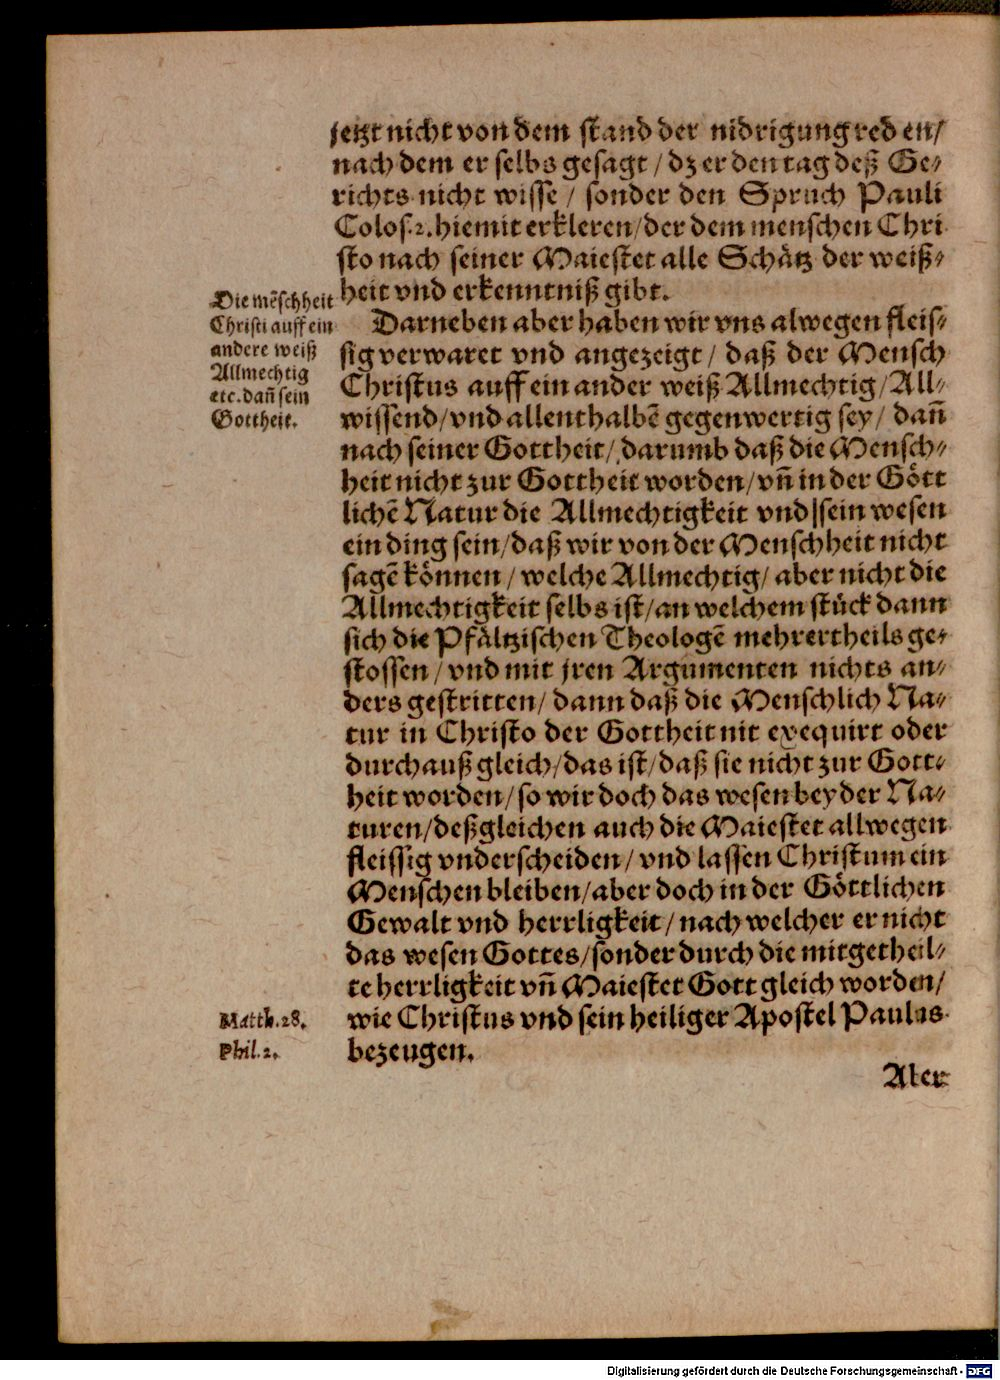 jetzt nicht von dem stand der nidrigung reden/
nach dem er selbs gesagt / dz er den tag deß Ge-
richts nicht wisse / sonder den Spruch Pauli
Colos. 2. hiemit erkleren/der dem menschen Chri
sto nach seiner Maiestet alle Schätz der weiß-
heit vnd erkenntniß gibt.
Die mẽschheit
Christi auff ein
andere weiß
Allmechtig
etc. dañ sein
Gottheit.
Darneben aber haben wir vns alwegen fleis-
sig verwaret vnd angezeigt / daß der Mensch
Christus auff ein ander weiß Allmechtig/All-
wissend/vnd allenthalbẽ gegenwertig sey/ dañ
nach seiner Gottheit/ darumb daß die Mensch-
heit nicht zur Gottheit worden/vñ in der Gött
lichẽ Natur die Allmechtigkeit vnd|sein wesen
ein ding sein/daß wir von der Menschheit nicht
sagẽ können / welche Allmechtig/ aber nicht die
Allmechtigkeit selbs ist/an welchem stück dann
sich die Pfältzischen Theologẽ mehrertheils ge-
stossen / vnd mit jren Argumenten nichts an-
ders gestritten/ dann daß die Menschlich Na-
tur in Christo der Gottheit nit exequirt oder
durchauß gleich/das ist/daß sie nicht zur Gott-
heit worden/so wir doch das wesen beyder Na-
turen/deßgleichen auch die Maiestet allwegen
fleissig vnderscheiden/ vnd lassen Christum ein
Menschen bleiben/aber doch in der Göttlichen
Gewalt vnd herrligkeit/nach welcher er nicht
das wesen Gottes/sonder durch die mitgetheil-
te herrligkeit vñ Maiestet Gott gleich worden/
Matth. 28.
wie Christus vnd sein heiliger Apostel Paulus
Phil. 2.
bezeugen.
Aber
Digitalisierung gefördert durch die Deutsche Forschungsgemeinschaft - DFG